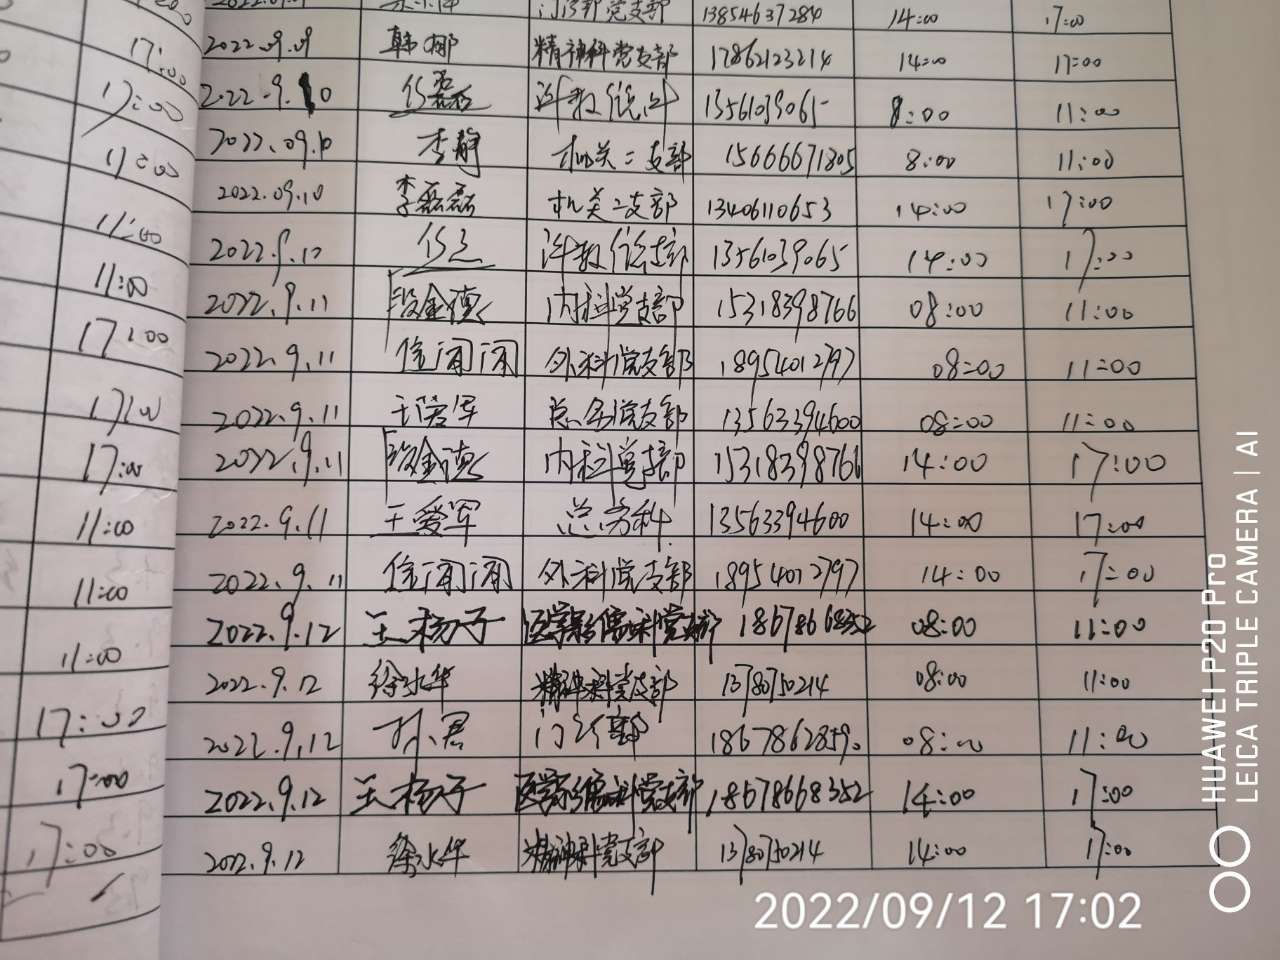 13854637284 14:00 17:00
17:00 2022.09.09 韩娜 精神科党支部 17862123214 14:00 17:00
17:00 2022.9.10 任磊 13561039065 8:00 11:00
11:00 2022.09.10 李静 机关二支部 15666671805 8:00 11:00
2022.09.10 李磊磊 机关二支部 13406110653 14:00 17:00
11:00 2022.9.10 13561039065 14:00 17:00
11:00 2022.9.11 段金德 内科党支部 15318398766 08:00 11:00
17:00 2022.9.11 徐闹闹 外科党支部 18954012797 08:00 11:00
17:00 2022.9.11 王爱军 总务党支部 13563394600 08:00 11:00
17:00 2022.9.11 段金德 内科党支部 15318398766 14:00 17:00
11:00 2022.9.11 王爱军 总务科 13563394600 14:00 17:00
11:00 2022.9.11 外科党支部 18954012797 14:00 17:00
11:00 2022.9.12 王杨子 医学影像科党支部 18678668352 08:00 11:00
17:00 2022.9.12 徐水华 精神科党支部 13780750214 08:00 11:00
2022.9.12 门诊部 18678628590 08:00 11:00
17:00 2022.9.12 王杨子 医学影像科党支部 18678668352 14:00 17:00
17:00 2022.9.12 徐水华 精神科党支部 13780750214 14:00 17:00
HUAWEI P20 Pro
LEICA TRIPLE CAMERA | AI
2022/09/12 17:02